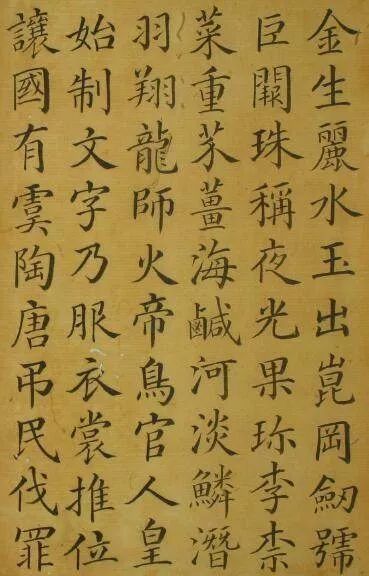 金生麗水玉出崑岡劒號
巨闕珠稱夜光果珎李柰
菜重芥薑海鹹河淡鱗潛
羽翔龍師火帝鳥官人皇
始制文字乃服衣裳推位
讓國有虞陶唐弔民伐罪